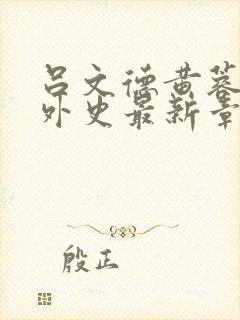 吕文德黄蓉
外史最新章
殷正